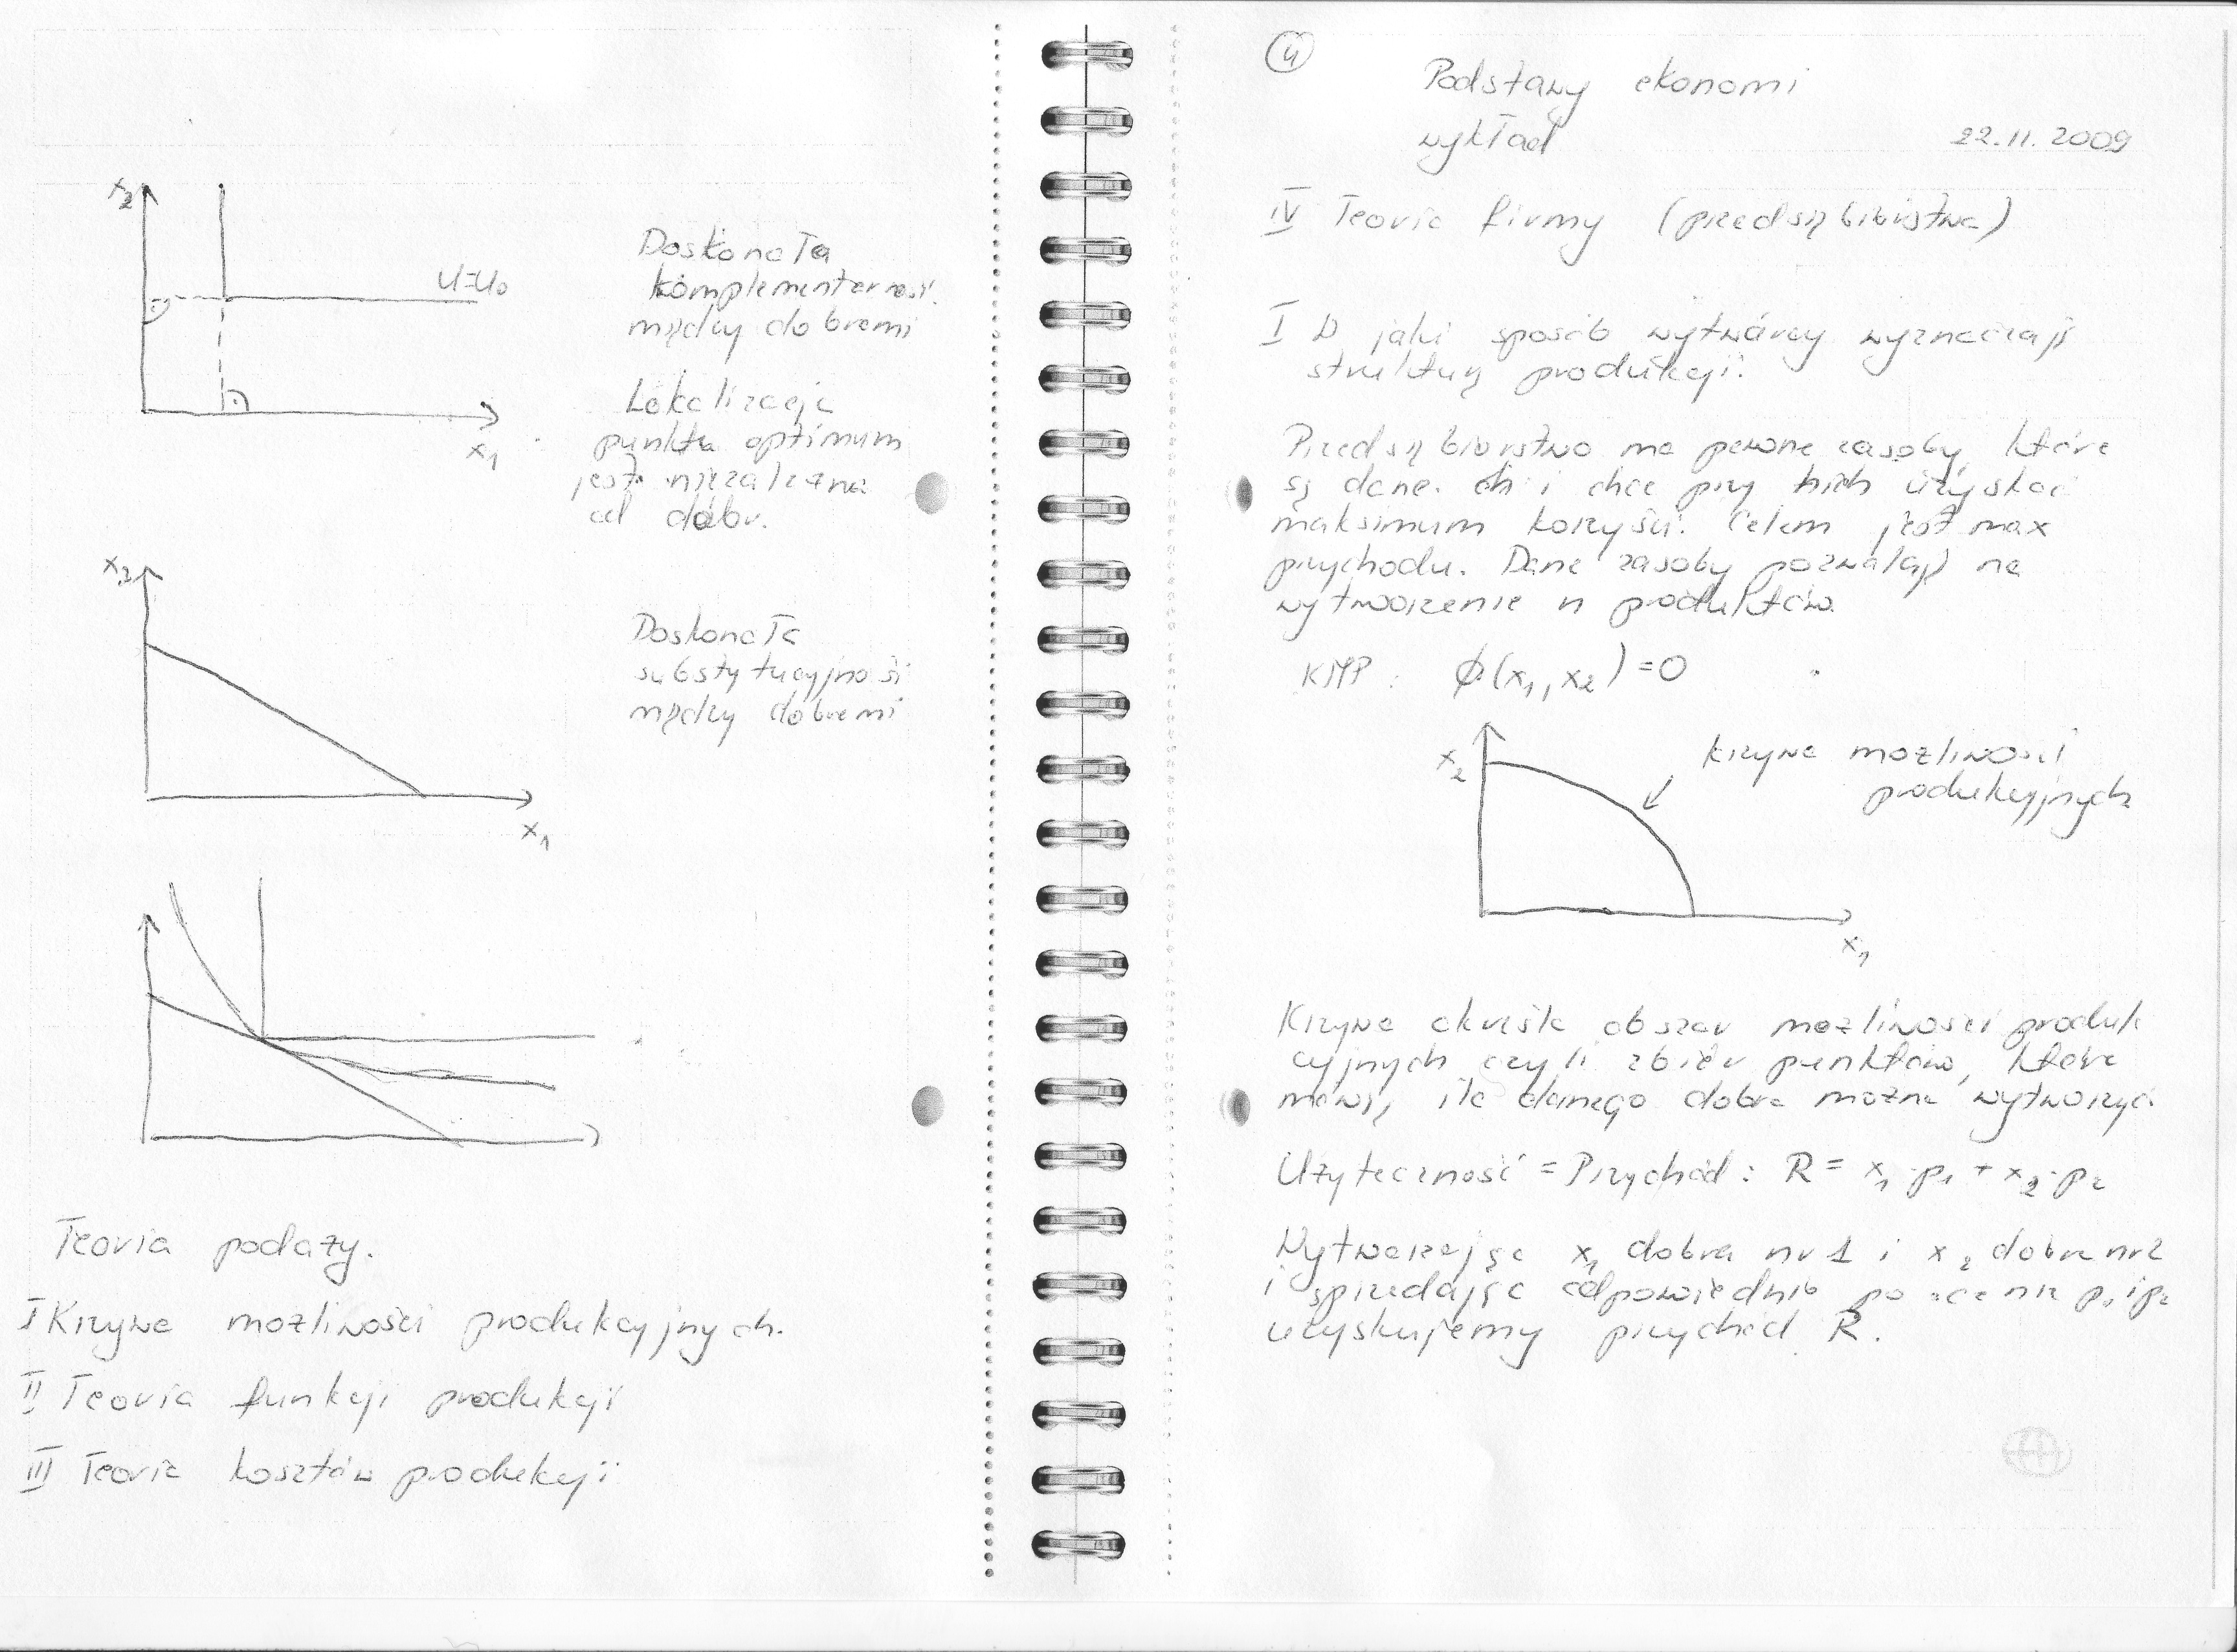 x2
U=U0
x1
Doskonała
komplementarność
między dobrami
Lokalizacja
punktu optimum
jest niezależna
od dóbr.
x2
x1
Doskonała
substytucyjność
między dobrami
Teoria podaży.
I Krzywa możliwości produkcyjnych.
II Teoria funkcji produkcji
III Teoria kosztów produkcji
4
Podstawy ekonomi
wykład
22.11.2009
IV Teoria firmy (przedsiębiorstwa)
I W jaki sposób wytwórcy wyznaczają
strukturę produkcji:
Przedsiębiorstwo ma pewne zasoby, które
są dane i chce przy nich uzyskać
maksimum korzyści. Celem jest max
przychodu. Dane zasoby pozwalają na
wytworzenie n produktów.
KMP: ϕ(x1, x2)=0
x2
krzywa możliwości
produkcyjnych
x1
Krzywa określa obszar możliwości produk
cyjnych czyli zbiór punktów, które
mówią, ile danego dobra można wytworzyć
Użyteczność = Przychód: R = x1·p1 + x2·p2
Wytwarzając x1 dobra nr 1 i x2 dobra nr 2
i sprzedając odpowiednio po cenie p1 i p2
uzyskujemy przychód R.